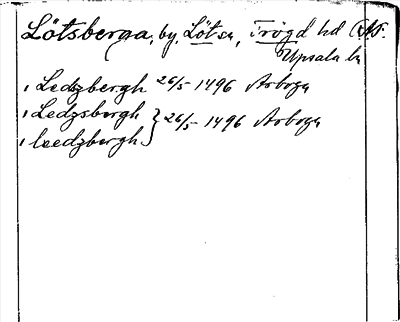 Lötsberga, by, Lötsa, Trögd hd
Upsala ln
i Ledzbergh 26/5 1496 Arboga
i Ledzsbergh } 26/5 1496 Arboga
i leedzbergh